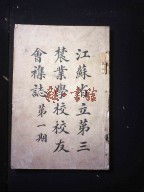 江蘇省立第三
農業學校校友
會襍誌第一期